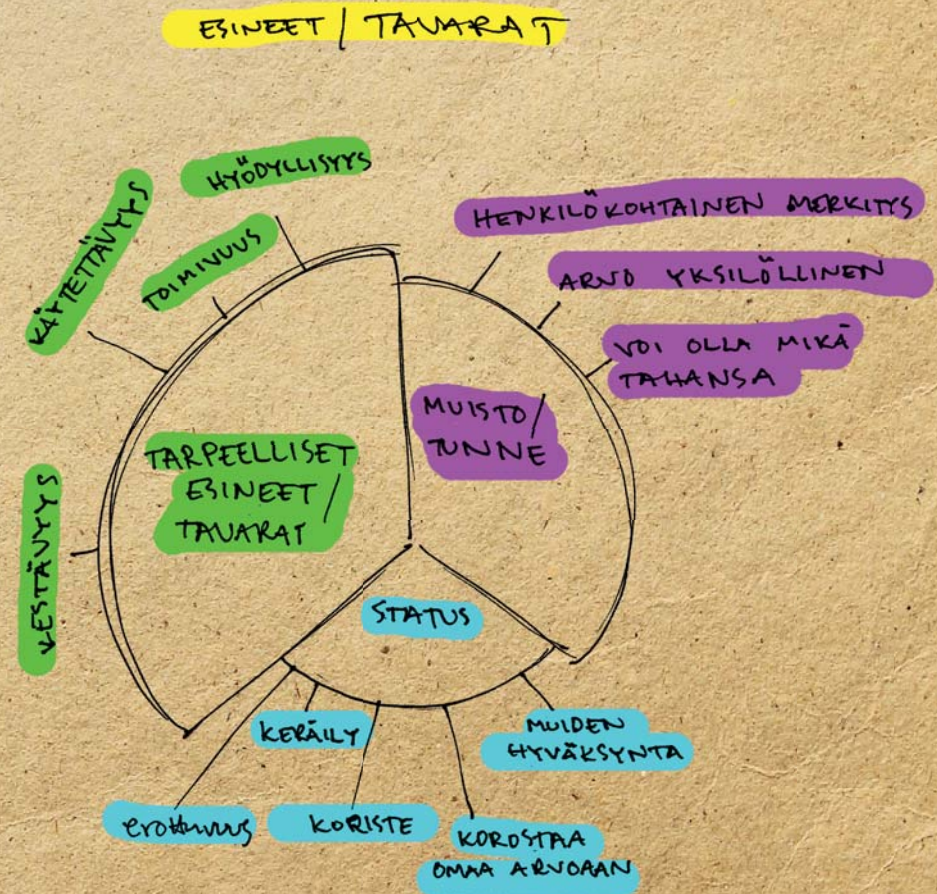 ESINEET / TAVARAT
HYÖDYLLISYYS
KÄYTETTÄVYYS
TOIMIVUUS
KESTÄVYYS
TARPEELLISET
ESINEET /
TAVARAT
HENKILÖKOHTAINEN MERKITYS
ARVO YKSILÖLLINEN
VOI OLLA MIKÄ
TAHANSA
MUISTO/
TUNNE
STATUS
KERÄILY
MUIDEN
HYVÄKSYNTA
erottuvuus
KORISTE
KOROSTAA
OMAA ARVOAAN